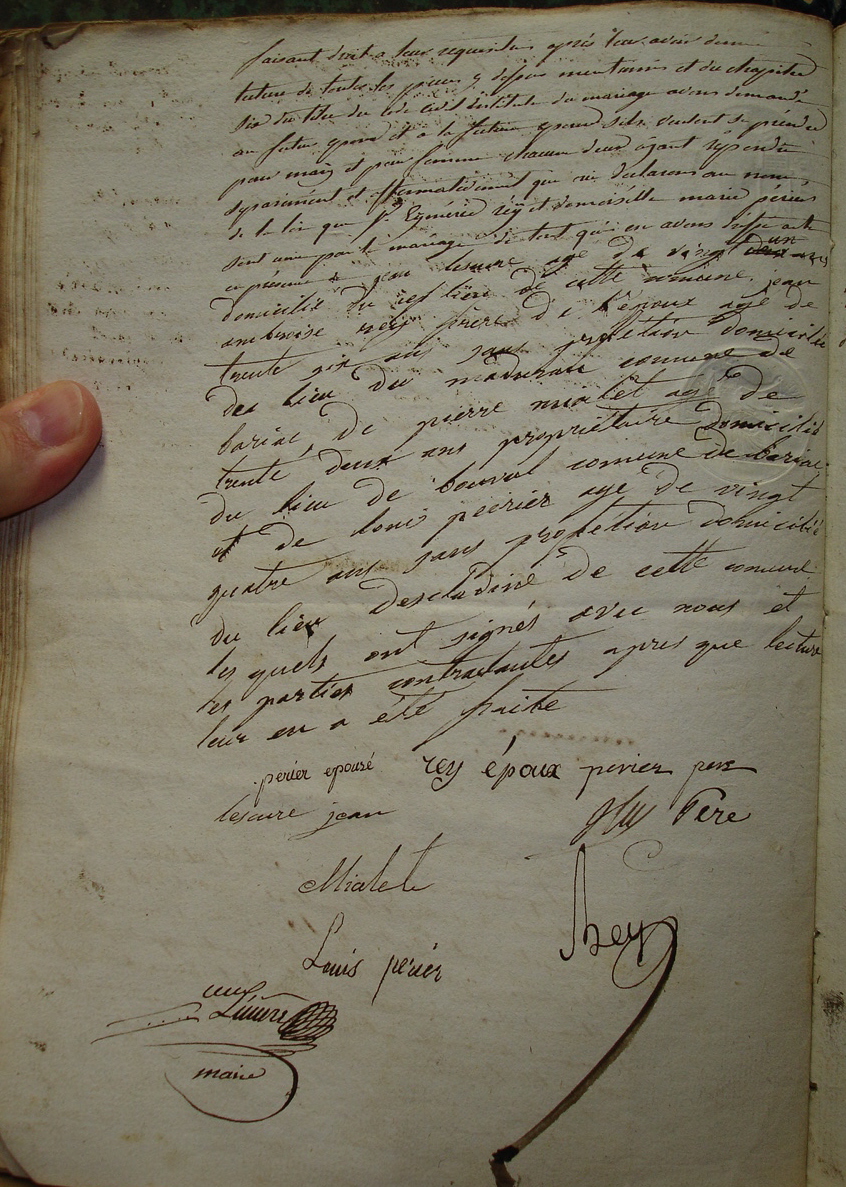 faisant droit a leur requisition après leur avoir donné
lecture de toutes les pieces y dessus mentionnés et du chapitre
six du titre du code civil intitulé du mariage avons demandé
au futur epoux et a la future epouse sils veulent se prendre
pour mary et pour femme chacun deux ayant répondu
séparément et affirmativement que oui declarons au nom
de la loi que Sr Eymérie rëy et demoiselle marie périer
sont unis par le mariage de tout quoi en avons dréssé acte
en présence de jean lesure age de vingt un ans
domicilié du lieu de cette comune jean
ambroise rëy frère de l'époux age de
trente six ans sans profetion domicilié
du lieu du comune de
bariac, de pierre mialet agé de
trente deux ans propriétaire domicilié
du lieu de bouval comune de bariac
et de louis peirier age de vingt
quatre ans sans profetion domicilié
du lieu de cette comune
les quels ont signés avec nous et
les parties contractantes apres que lecture
leur en a été faite
perier epouse rey époux perier pere
lesure jean Rey Père
Mialet
Rey
Louis périer
maire